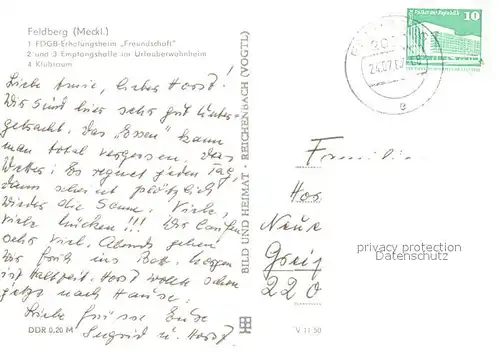 Feldberg (Meckl.)
1 FDGB-Erholungsheim „Freundschaft"
2 und 3 Empfangshalle im Urlauberwohnheim
4 Klubraum
Liebe Annie, lieber Horst!
Wir sind hier sehr gut unter-
gebracht. Das "Essen" kann
man total vergessen. Das
Wetter: Es regnet jeden Tag,
dann scheint plötzlich
wieder die Sonne. Viele,
viele Mücken!!! Wir laufen
sehr viel. Abends gehen
wir früh ins Bett. Morgen
ist Halbzeit. Horst wollte schon
jetzt nach Hause.
Liebe Grüsse Eure
Ingrid u. Horst
DDR 0,20 M
BILD UND HEIMAT · REICHENBACH (VOGTL)
V 11 50
10
24.07.
e
Familie
Hor
Neue
Greif
220
privacy protection
Datenschutz